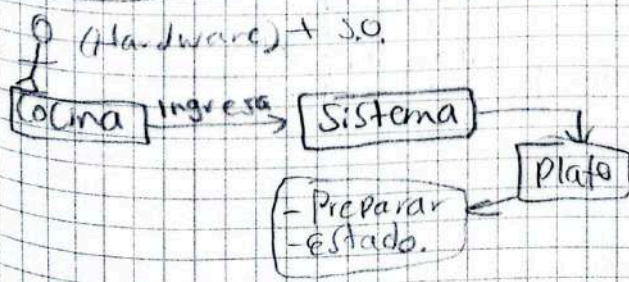 (Hardware) + S.O.
Cocina ingresa Sistema
Plato
- Preparar
- Estado.